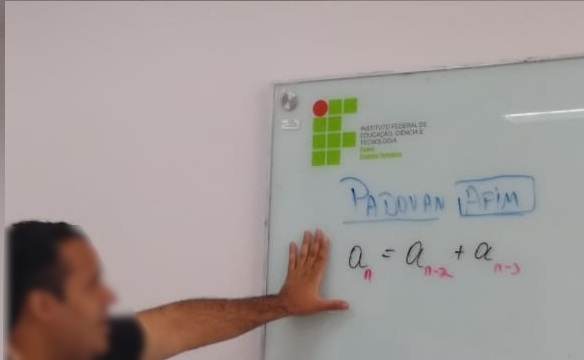 INSTITUTO FEDERAL DE
EDUCAÇÃO, CIÊNCIA E
TECNOLOGIA
PADOVAN AFIM
aₙ = aₙ₋₂ + aₙ₋₃